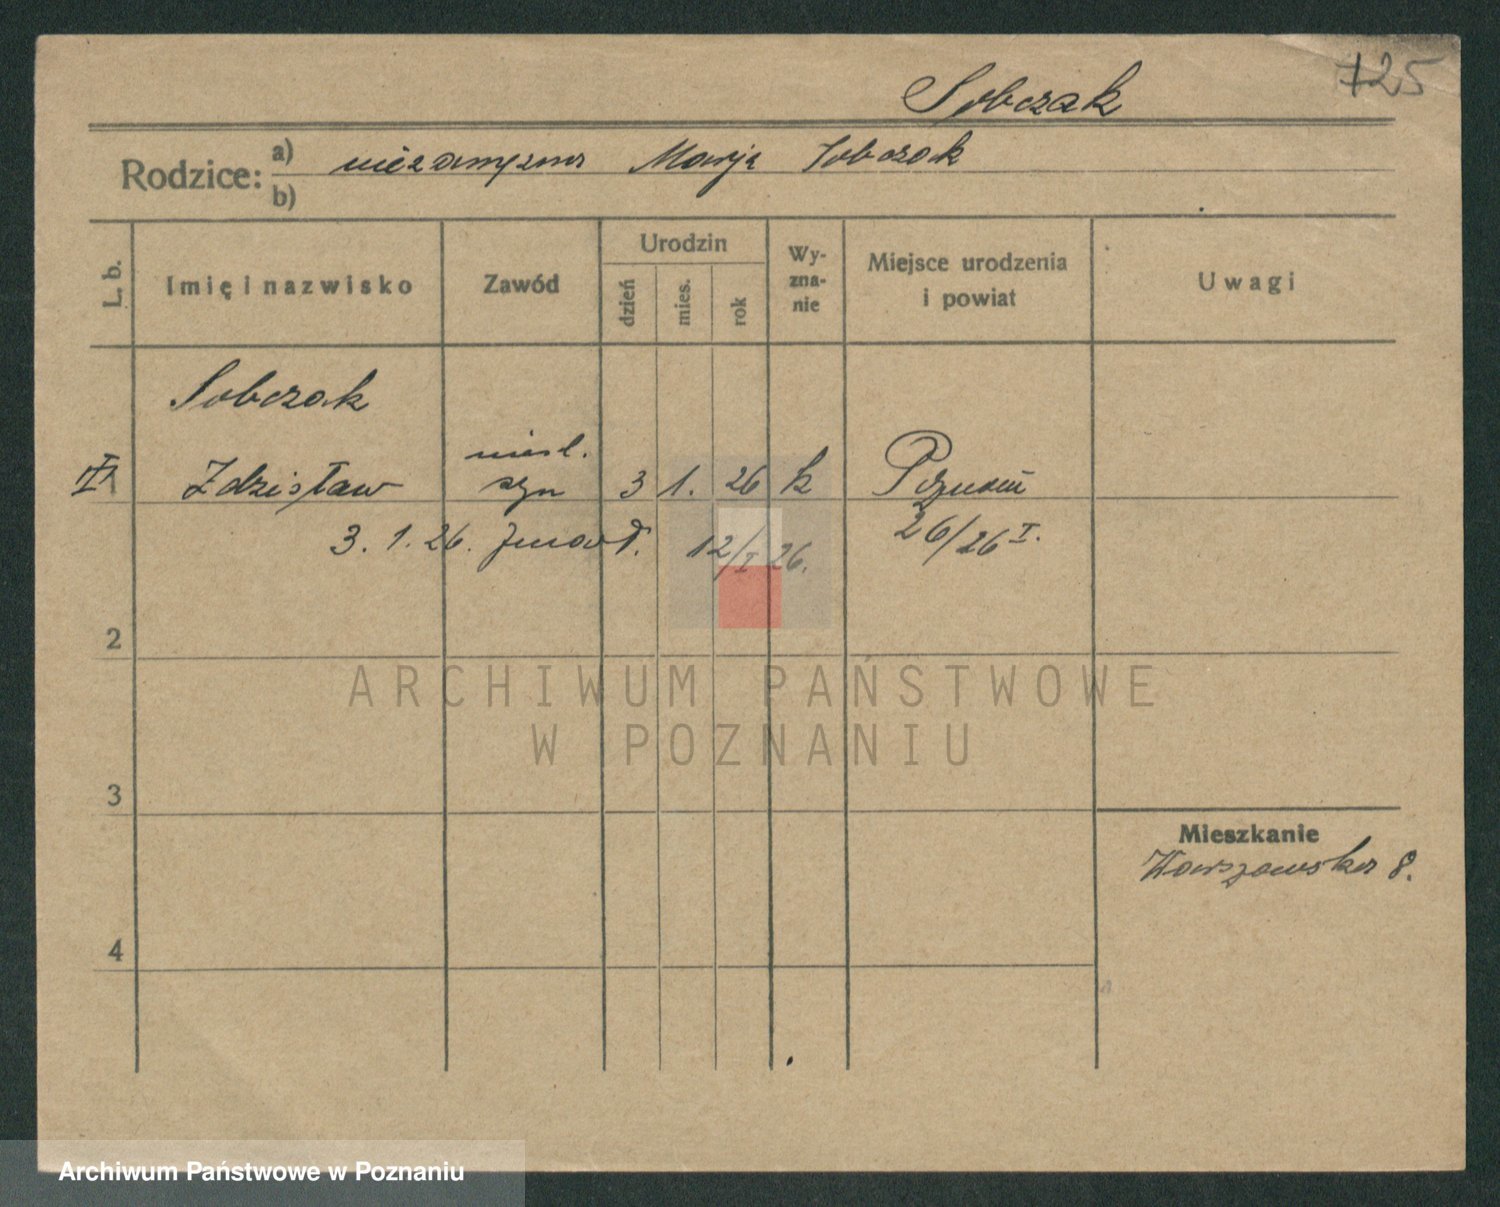 725
Sobczak
Rodzice: a) niezamężna Marja Sobczak
b)
L. b.
Imię i nazwisko
Zawód
Urodzin
dzień
mies.
rok
Wy-
zna-
nie
Miejsce urodzenia
i powiat
Uwagi
Sobczak
1 Zdzisław
nieśl.
syn
3 1. 26 k Poznań
3. 1. 26. zmarł. 12/I 26. 26/26 I.
2
ARCHIWUM PAŃSTWOWE
W POZNANIU
3
Mieszkanie
Warszawska 8.
4
Archiwum Państwowe w Poznaniu